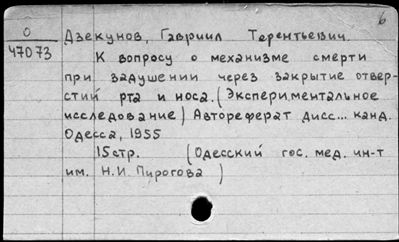 б
О
47073
Дзекунов, Гавриил Терентьевич.
К вопросу о механизме смерти
при задушении через закрытие отвер-
стий рта и носа. (Экспериментальное
исследование) Автореферат дисс... канд.
Одесса, 1955
15 стр. (Одесский гос. мед. ин-т
им. Н.И. Пирогова)